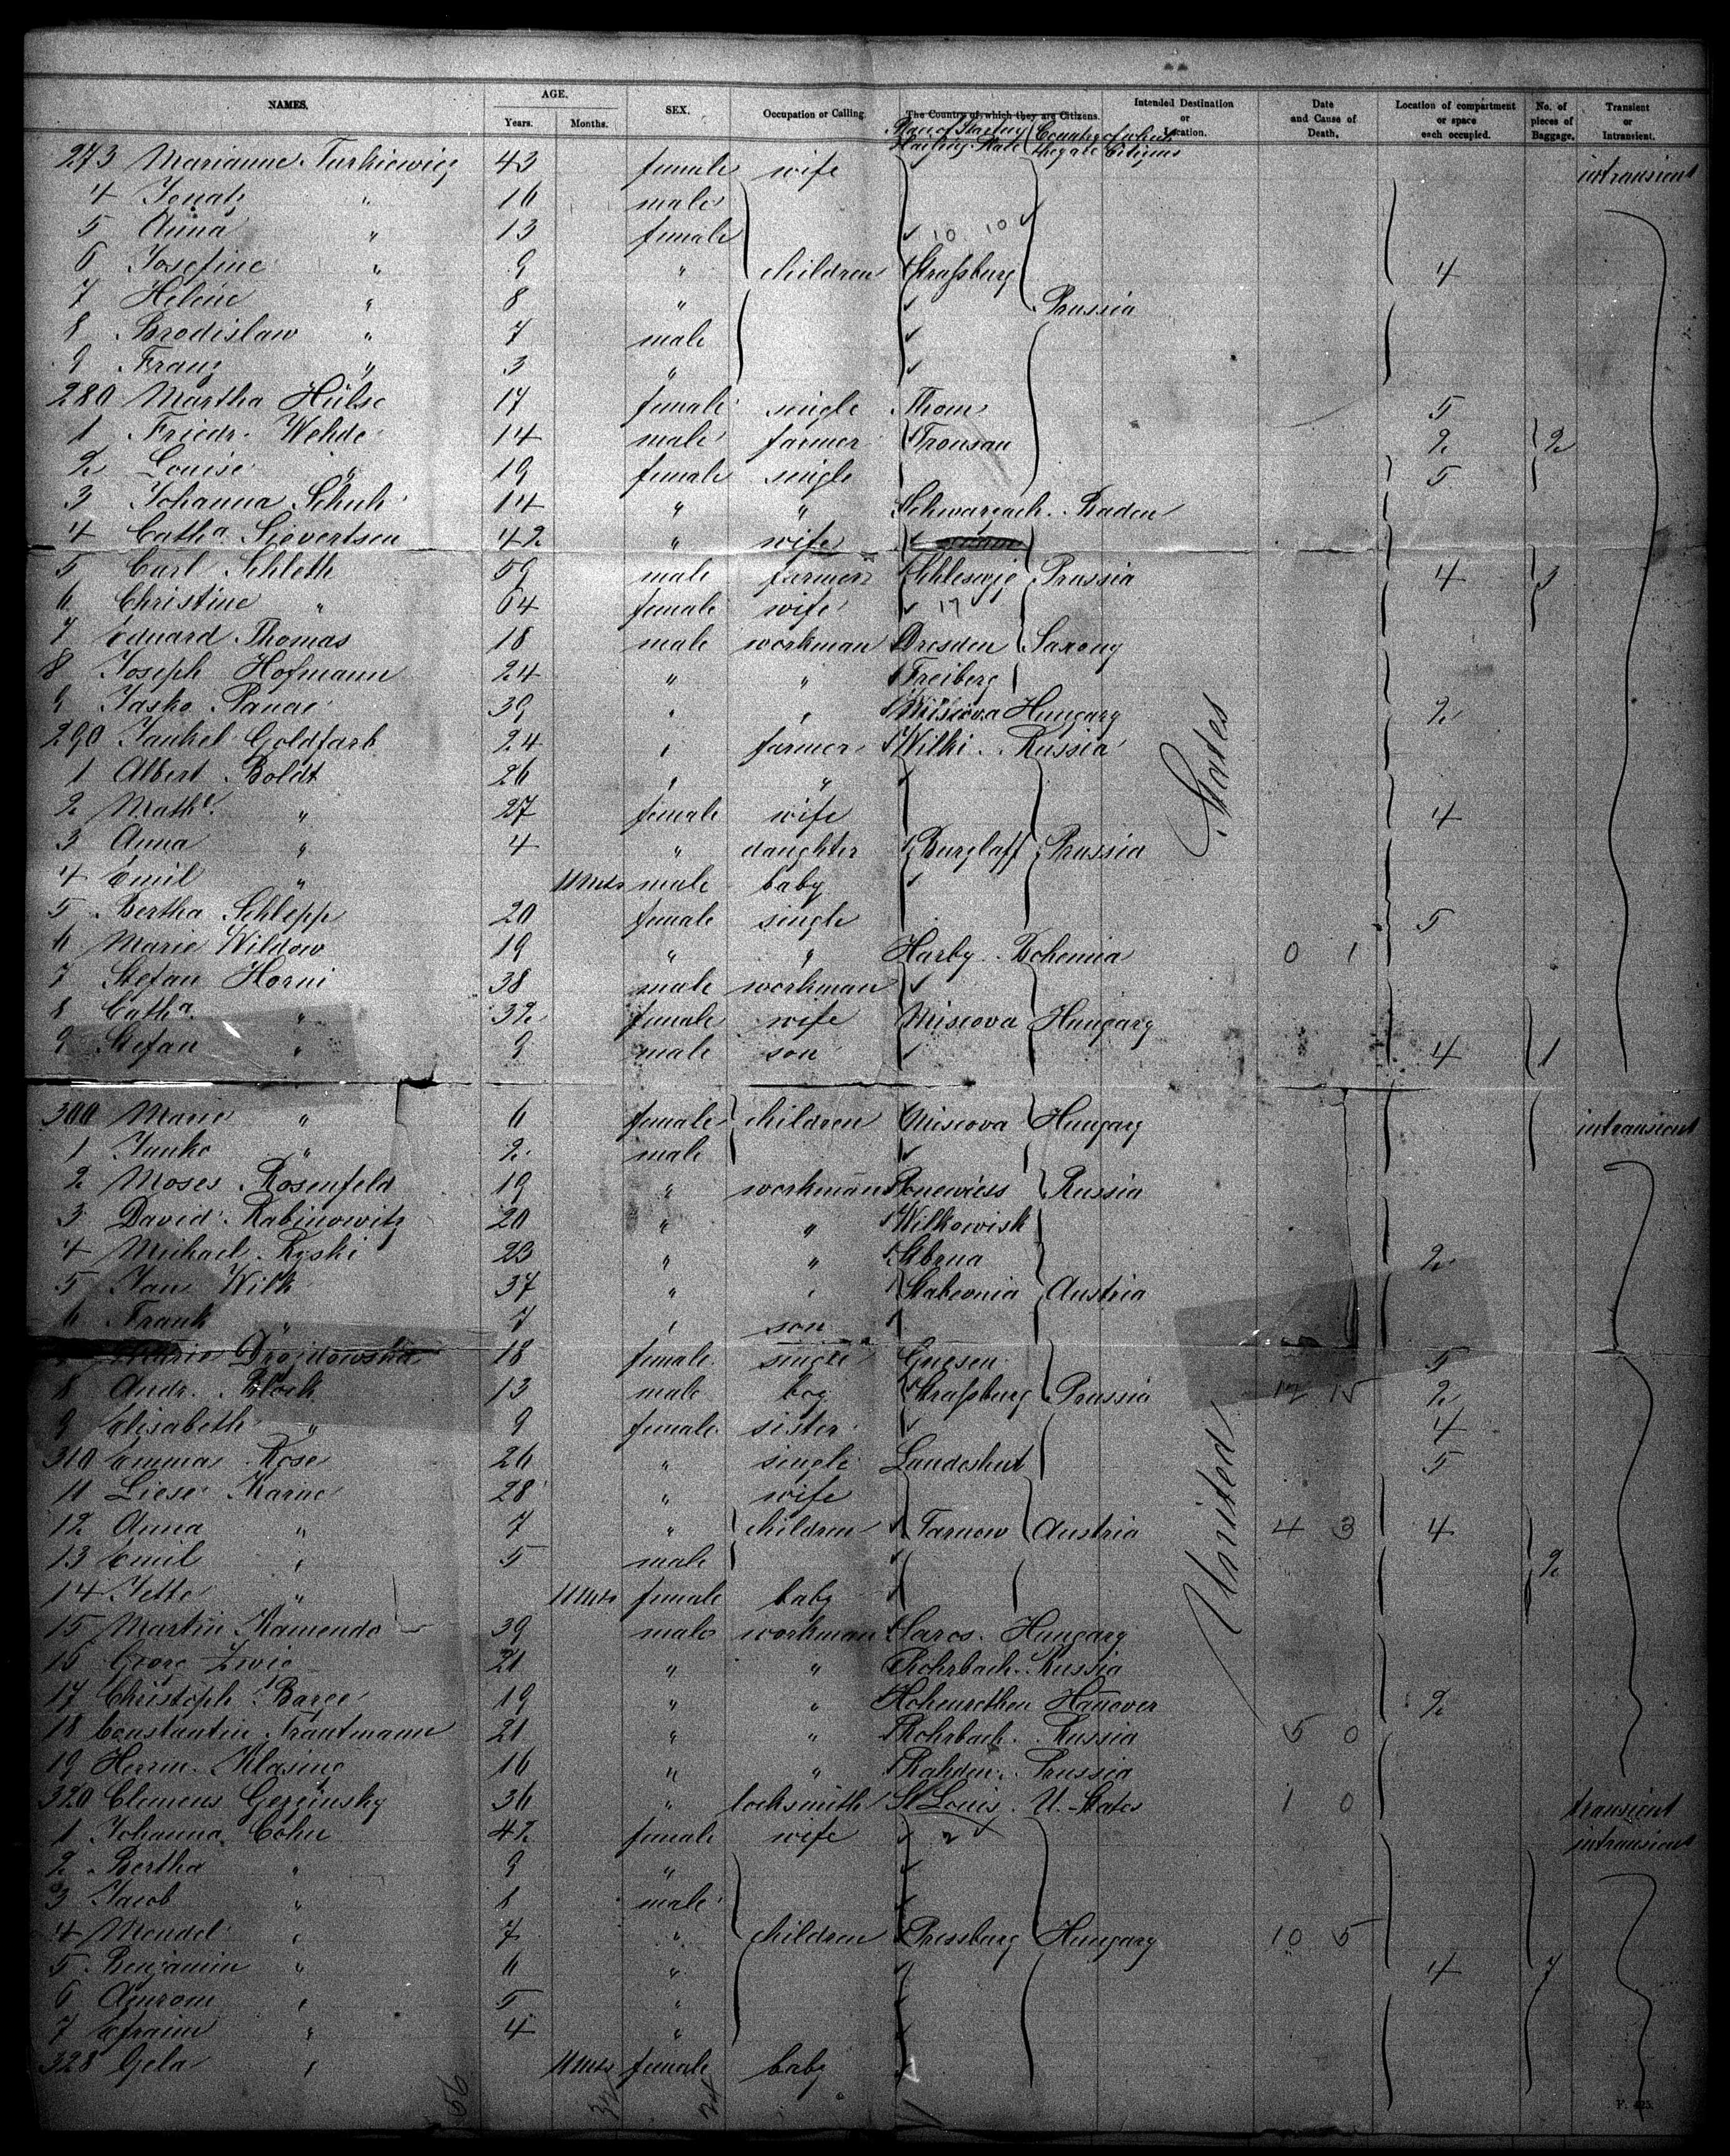 NAMES. AGE. Years. Months. SEX. Occupation or Calling. The Country of which they are Citizens. Intended Destination or Location. Date and Cause of Death. Location of compartment or space each occupied. No. of pieces of Baggage. Transient or Intransient.
Place of Starting Country of which they are Citizens
273 Marianne Turkiewicz 43 female wife intransient
4 Ignatz " 16 male
5 Anna " 13 female 10 10
6 Josefine " 9 " children Straßburg 4
7 Helene " 8 " Prussia
8 Brodislaw " 7 male
9 Franz " 3 "
280 Martha Hülse 17 female single Thorn 5
1 Friedr. Wehde 14 male farmer Tronsau 2 2
2 Louise " 19 female single 5
3 Johanna Schuh 14 " " Schwarzach Baden
4 Catha Sievertsen 42 " wife
5 Carl Schleth 59 male farmer Schleswig Prussia 4 3
6 Christine " 64 female wife 17
7 Eduard Thomas 18 male workman Dresden Saxony
8 Joseph Hofmann 24 " " Freiberg
9 Jasko Panac 39 " " Miscova Hungary 2
290 Jankel Goldfarb 24 " farmer Wilki Russia
1 Albert Boldt 26 " "
2 Mathe " 27 female wife 4
3 Anna " 4 " daughter Burzlaff Prussia
4 Emil " 11 Mts male baby
5 Bertha Schlepp 20 female single 5
6 Marie Wildow 19 " " Harby Bohemia 0 1
7 Stefan Horni 38 male workman
8 Catha " 32 female wife Miscova Hungary
9 Stefan " 9 male son 4 1
300 Marie " 6 female children Miscova Hungary intransient
1 Janko " 2 male
2 Moses Rosenfeld 19 " workman Ponewiess Russia
3 David Rabinowitz 20 " " Wilkowisk
4 Michael Ryski 23 " " 2
5 Jan Wilk 37 " " Austria
6 Frank " 7 " son
Marie Drojdowska 18 female single Gnesen 5
8 Andr. Block 13 male boy Straßburg Prussia 12 15 2
9 Elisabeth " 9 female sister 4
310 Emma Rose 26 " single Landeshut 5
11 Liese Karine 28 " wife
12 Anna " 7 " children Tarnow Austria 4 3 4
13 Emil " 5 male 2
14 Jette " 11 Mts female baby
15 Martin Kamendo 39 male workman Saros Hungary
16 Georg Zwic 21 " " Rohrbach Russia
17 Christoph Barge 19 " " Hohenrethen Hanover 2
18 Constantin Trautmann 21 " " Rohrbach Russia 5 0
19 Herrm. Klasing 16 " " Rahden Prussia
320 Clemens Gerzinsky 36 " locksmith St Louis U. States 1 0 transient
1 Johanna Cohn 42 female wife 2 intransient
2 Bertha " 9 "
3 Jacob " 8 male
4 Mendel " 7 " children Pressburg Hungary 10 5
5 Benjamin " 6 " 4 7
6 Amrom " 5 "
7 Efraim " 4 "
328 Gela " 11 Mts female baby
United States
56